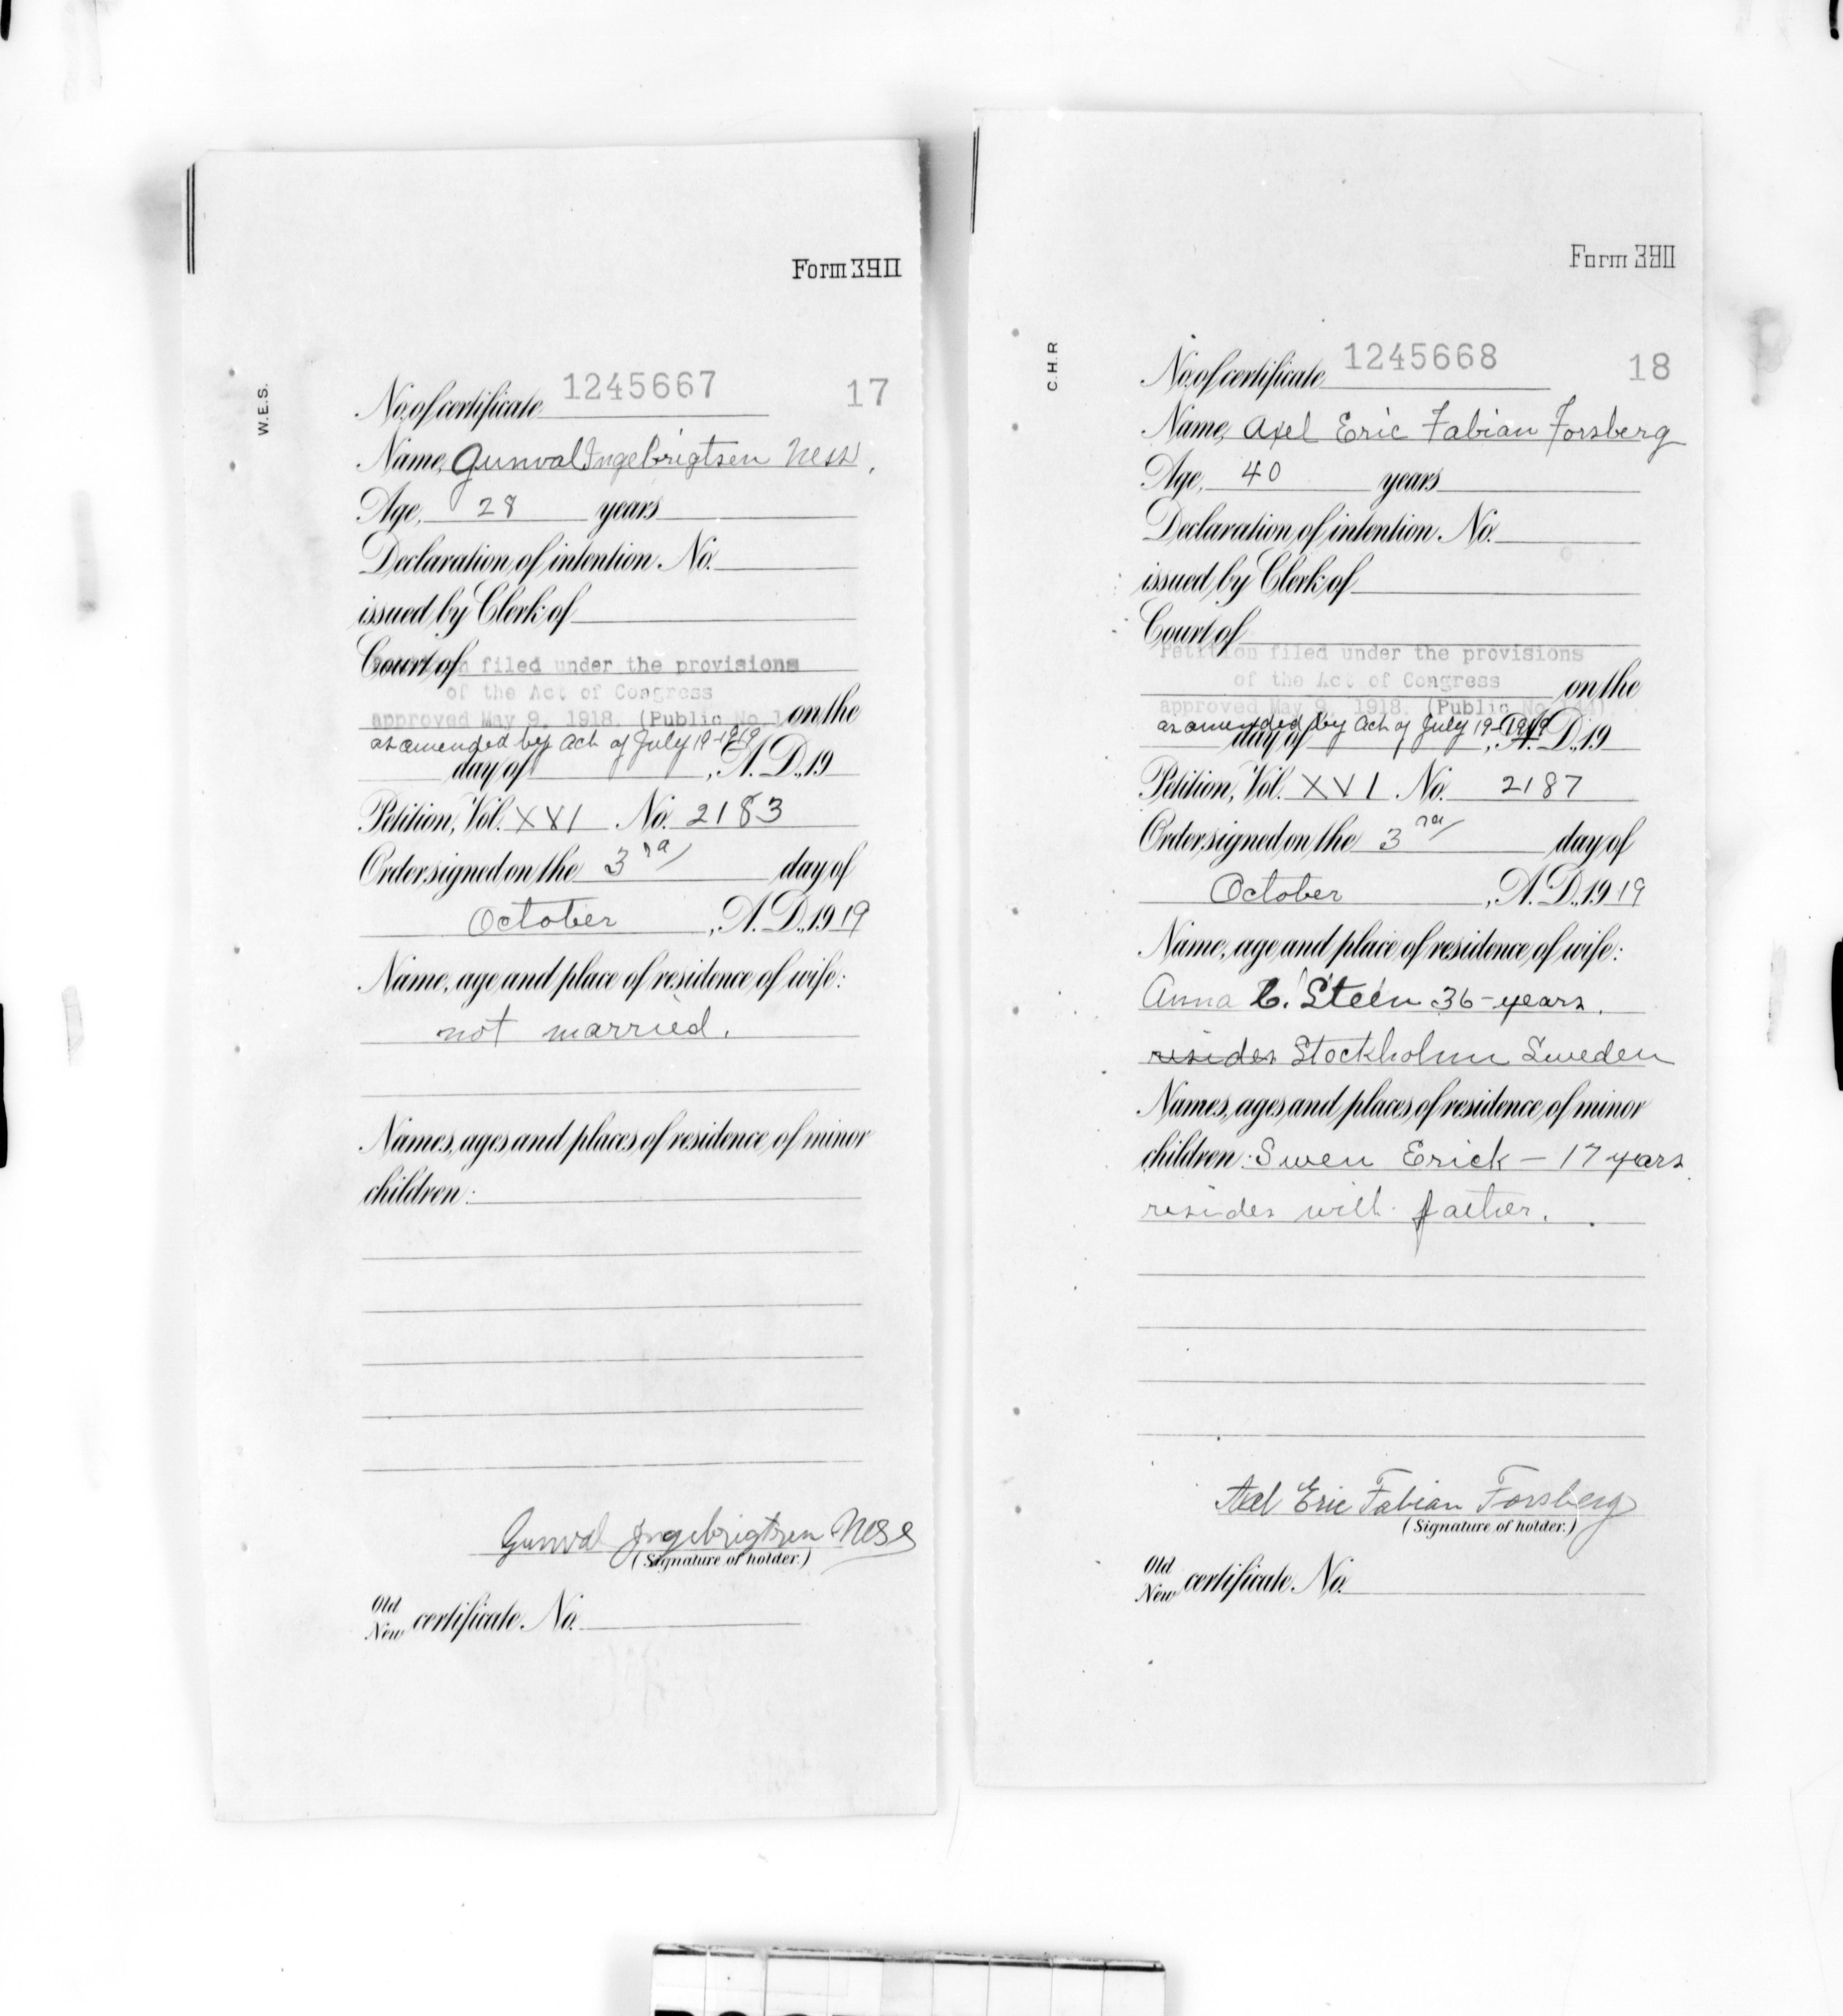 Form 390
W.E.S.
No. of certificate 1245667 17
Name, Gunval Ingebrigtsen Ness.
Age, 28 years
Declaration of intention No.
issued by Clerk of
Court of
filed under the provisions
of the Act of Congress
approved May 9, 1918. (Public No. on the
as amended by Act of July 19-1919
day of , A.D., 19
Petition, Vol. XVI No. 2183
Order signed on the 3rd day of
October , A.D., 1919
Name, age and place of residence of wife:
not married.
Names, ages and places of residence of minor
children:
Gunval Ingebrigtsen Ness
(Signature of holder.)
Old
New certificate No.
Form 390
C.H.R
No. of certificate 1245668 18
Name, Axel Eric Fabian Forsberg
Age, 40 years
Declaration of intention No.
issued by Clerk of
Court of
Petition filed under the provisions
of the Act of Congress on the
approved May 9, 1918. (Public No.
as amended by Act of July 19-1919
day of , A.D., 19
Petition, Vol. XVI No. 2187
Order signed on the 3rd day of
October , A.D., 1919
Name, age and place of residence of wife:
Anna C. Steen 36-years.
resides Stockholm Sweden
Names, ages and places of residence of minor
children: Swen Erick - 17 years
resides with father.
Axel Eric Fabian Forsberg
(Signature of holder.)
Old
New certificate No.